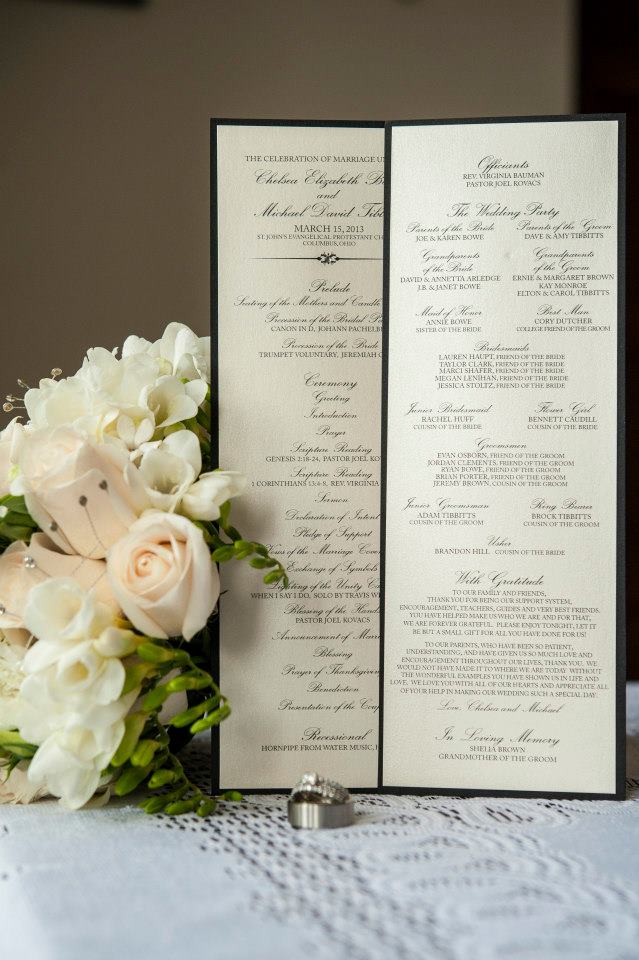 THE CELEBRATION OF MARRIAGE
Chelsea Elizabeth
and
Michael David
MARCH 15, 2013
ST. JOHN'S EVANGELICAL PROTESTANT
COLUMBUS, OHIO
Prelude
Seating of the Mothers and
Procession of the Bridal
CANON IN D, JOHANN
Procession of the Bride
TRUMPET VOLUNTARY, JEREMIAH
Ceremony
Greeting
Introduction
Prayer
Scripture Reading
GENESIS 2:18-24, PASTOR JOEL
Scripture Reading
1 CORINTHIANS 13:4-8, REV. VIRGINIA
Sermon
Declaration of Intent
Pledge of Support
Vows of the Marriage
Exchange of Symbols
Lighting of the Unity
WHEN I SAY I DO, SOLO BY TRAVIS
Blessing of the
PASTOR JOEL KOVACS
Announcement of
Blessing
Prayer of Thanksgiving
Benediction
Presentation of the
Recessional
HORNPIPE FROM WATER MUSIC,
Officiants
REV. VIRGINIA BAUMAN
PASTOR JOEL KOVACS
The Wedding Party
Parents of the Bride Parents of the Groom
JOE & KAREN BOWE DAVE & AMY TIBBITTS
Grandparents Grandparents
of the Bride of the Groom
DAVID & ANNETTA ARLEDGE ERNIE & MARGARET BROWN
J.B. & JANET BOWE KAY MONROE
ELTON & CAROL TIBBITTS
Maid of Honor Best Man
ANNIE BOWE CORY DUTCHER
SISTER OF THE BRIDE COLLEGE FRIEND OF THE GROOM
Bridesmaids
LAUREN HAUPT, FRIEND OF THE BRIDE
TAYLOR CLARK, FRIEND OF THE BRIDE
MARCI SHAFER, FRIEND OF THE BRIDE
MEGAN LENIHAN, FRIEND OF THE BRIDE
JESSICA STOLTZ, FRIEND OF THE BRIDE
Junior Bridesmaid Flower Girl
RACHEL HUFF BENNETT CAUDILL
COUSIN OF THE BRIDE COUSIN OF THE BRIDE
Groomsmen
EVAN OSBORN, FRIEND OF THE GROOM
JORDAN CLEMENTS, FRIEND OF THE GROOM
RYAN BOWE, FRIEND OF THE GROOM
BRIAN PORTER, FRIEND OF THE GROOM
JEREMY BROWN, COUSIN OF THE GROOM
Junior Groomsman Ring Bearer
ADAM TIBBITTS BROCK TIBBITTS
COUSIN OF THE GROOM COUSIN OF THE GROOM
Usher
BRANDON HILL COUSIN OF THE BRIDE
With Gratitude
TO OUR FAMILY AND FRIENDS,
THANK YOU FOR BEING OUR SUPPORT SYSTEM,
ENCOURAGEMENT, TEACHERS, GUIDES AND VERY BEST FRIENDS.
YOU HAVE HELPED MAKE US WHO WE ARE AND FOR THAT,
WE ARE FOREVER GRATEFUL. PLEASE ENJOY TONIGHT, LET IT
BE BUT A SMALL GIFT FOR ALL YOU HAVE DONE FOR US!
TO OUR PARENTS, WHO HAVE BEEN SO PATIENT,
UNDERSTANDING, AND HAVE GIVEN US SO MUCH LOVE AND
ENCOURAGEMENT THROUGHOUT OUR LIVES, THANK YOU. WE
WOULD NOT HAVE MADE IT TO WHERE WE ARE TODAY WITHOUT
THE WONDERFUL EXAMPLES YOU HAVE SHOWN US IN LIFE AND
LOVE. WE LOVE YOU WITH ALL OF OUR HEARTS AND APPRECIATE ALL
OF YOUR HELP IN MAKING OUR WEDDING SUCH A SPECIAL DAY.
Love, Chelsea and Michael
In Loving Memory
SHELIA BROWN
GRANDMOTHER OF THE GROOM